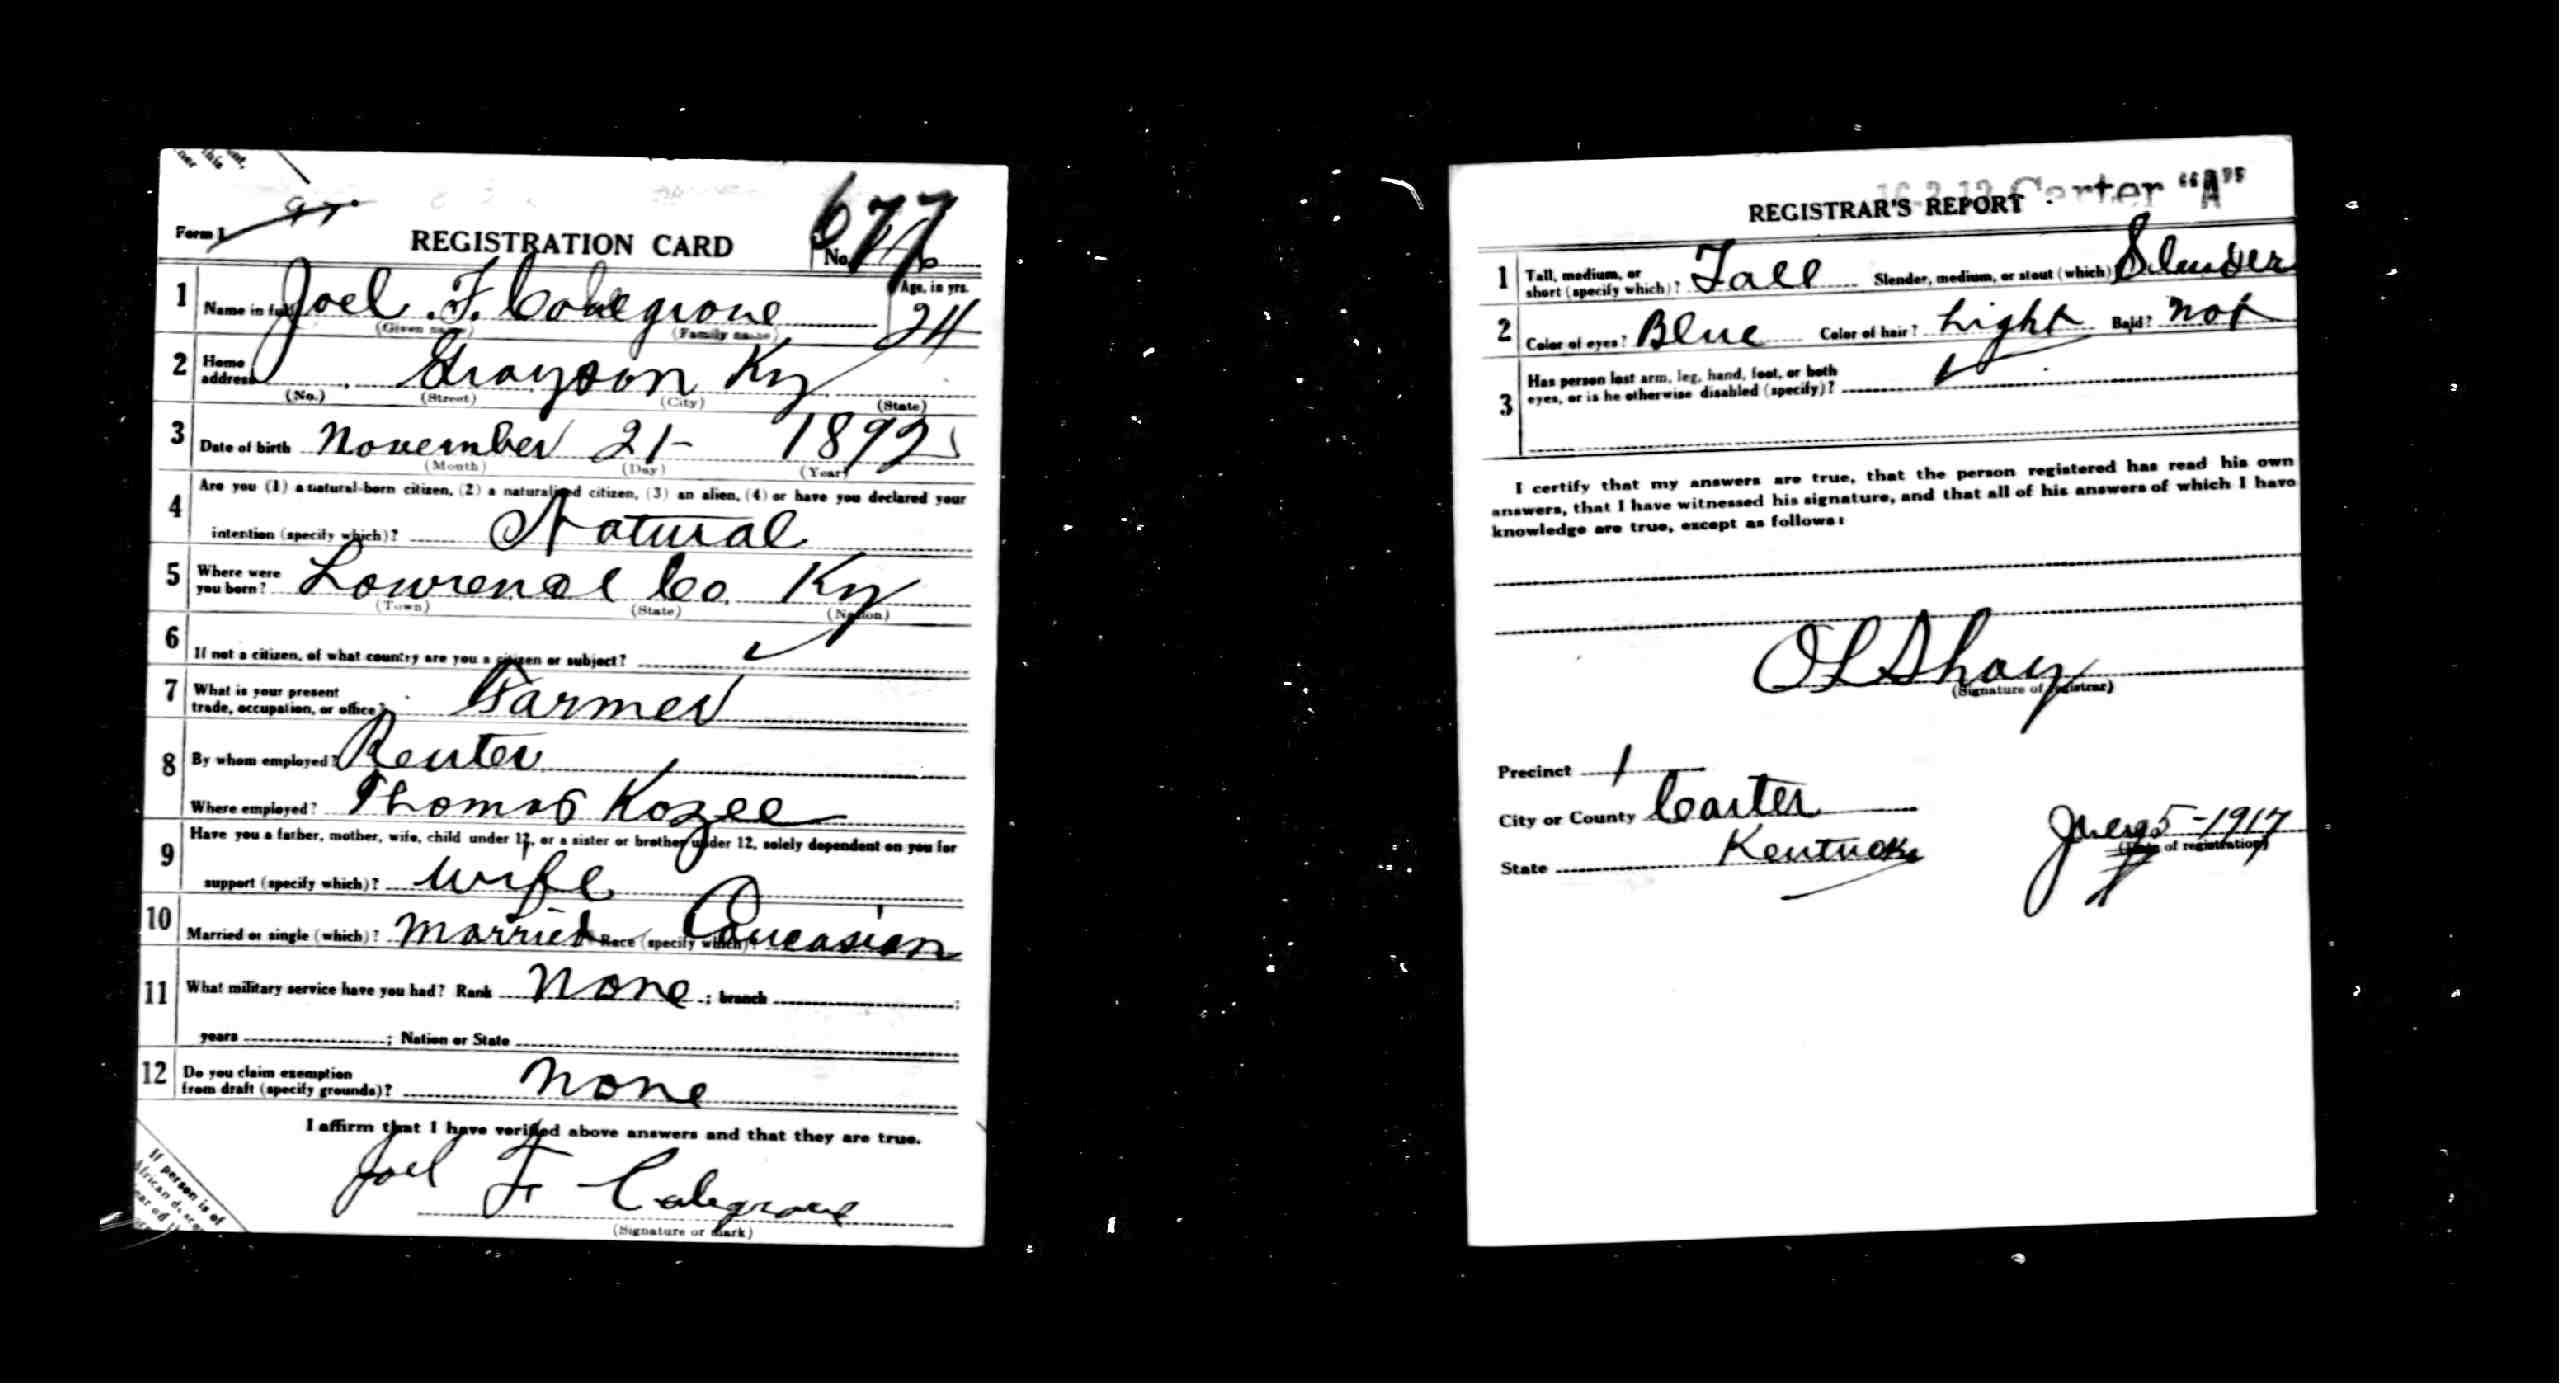 Form 1
REGISTRATION CARD
677
No.
1 Name in full Joel F. Colegrove
(Given name) (Family name)
Age, in yrs. 24
2 Home address Grayson Ky
(No.) (Street) (City) (State)
3 Date of birth November 21- 1892
(Month) (Day) (Year)
4 Are you (1) a natural-born citizen, (2) a naturalized citizen, (3) an alien, (4) or have you declared your
intention (specify which)? Natural
5 Where were you born? Lowrence Co. Ky
(Town) (State) (Nation)
6 If not a citizen, of what country are you a citizen or subject?
7 What is your present trade, occupation, or office? Farmer
8 By whom employed? Renter
Where employed? Thomas Kozee
9 Have you a father, mother, wife, child under 12, or a sister or brother under 12, solely dependent on you for
support (specify which)? wife
10 Married or single (which)? Married Race (specify which)? Caucasian
11 What military service have you had? Rank None ; branch ;
years ; Nation or State
12 Do you claim exemption from draft (specify grounds)? none
I affirm that I have verified above answers and that they are true.
Joel F Colegrove
(Signature or mark)
If person is of
Carter "A"
REGISTRAR'S REPORT
1 Tall, medium, or short (specify which)? Tall Slender, medium, or stout (which) Slender
2 Color of eyes? Blue Color of hair? Light Bald? Not
3 Has person lost arm, leg, hand, foot, or both
eyes, or is he otherwise disabled (specify)?
I certify that my answers are true, that the person registered has read his own
answers, that I have witnessed his signature, and that all of his answers of which I have
knowledge are true, except as follows:
O L Shay
(Signature of registrar)
Precinct 1
City or County Carter
State Kentucky
5-1917
(Date of registration)